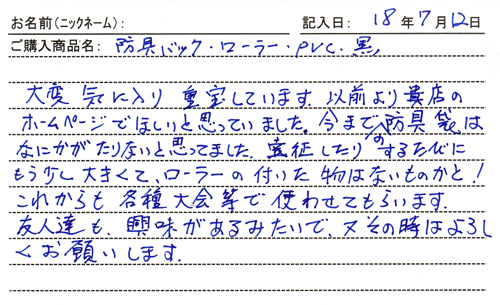 お名前(ニックネーム): 記入日: 18年7月12日
ご購入商品名: 防具バック・ローラー・PVC・黒
大変気に入り重宝しています。以前より貴店の
ホームページでほしいと思っていました。今までの防具袋は
なにかがたりないと思ってました。遠征したりするたびに
もう少し大きくて、ローラーの付いた物はないものかと!
これからも各種大会等で使わせてもらいます。
友人達も、興味があるみたいで、又その時はよろし
くお願いします。